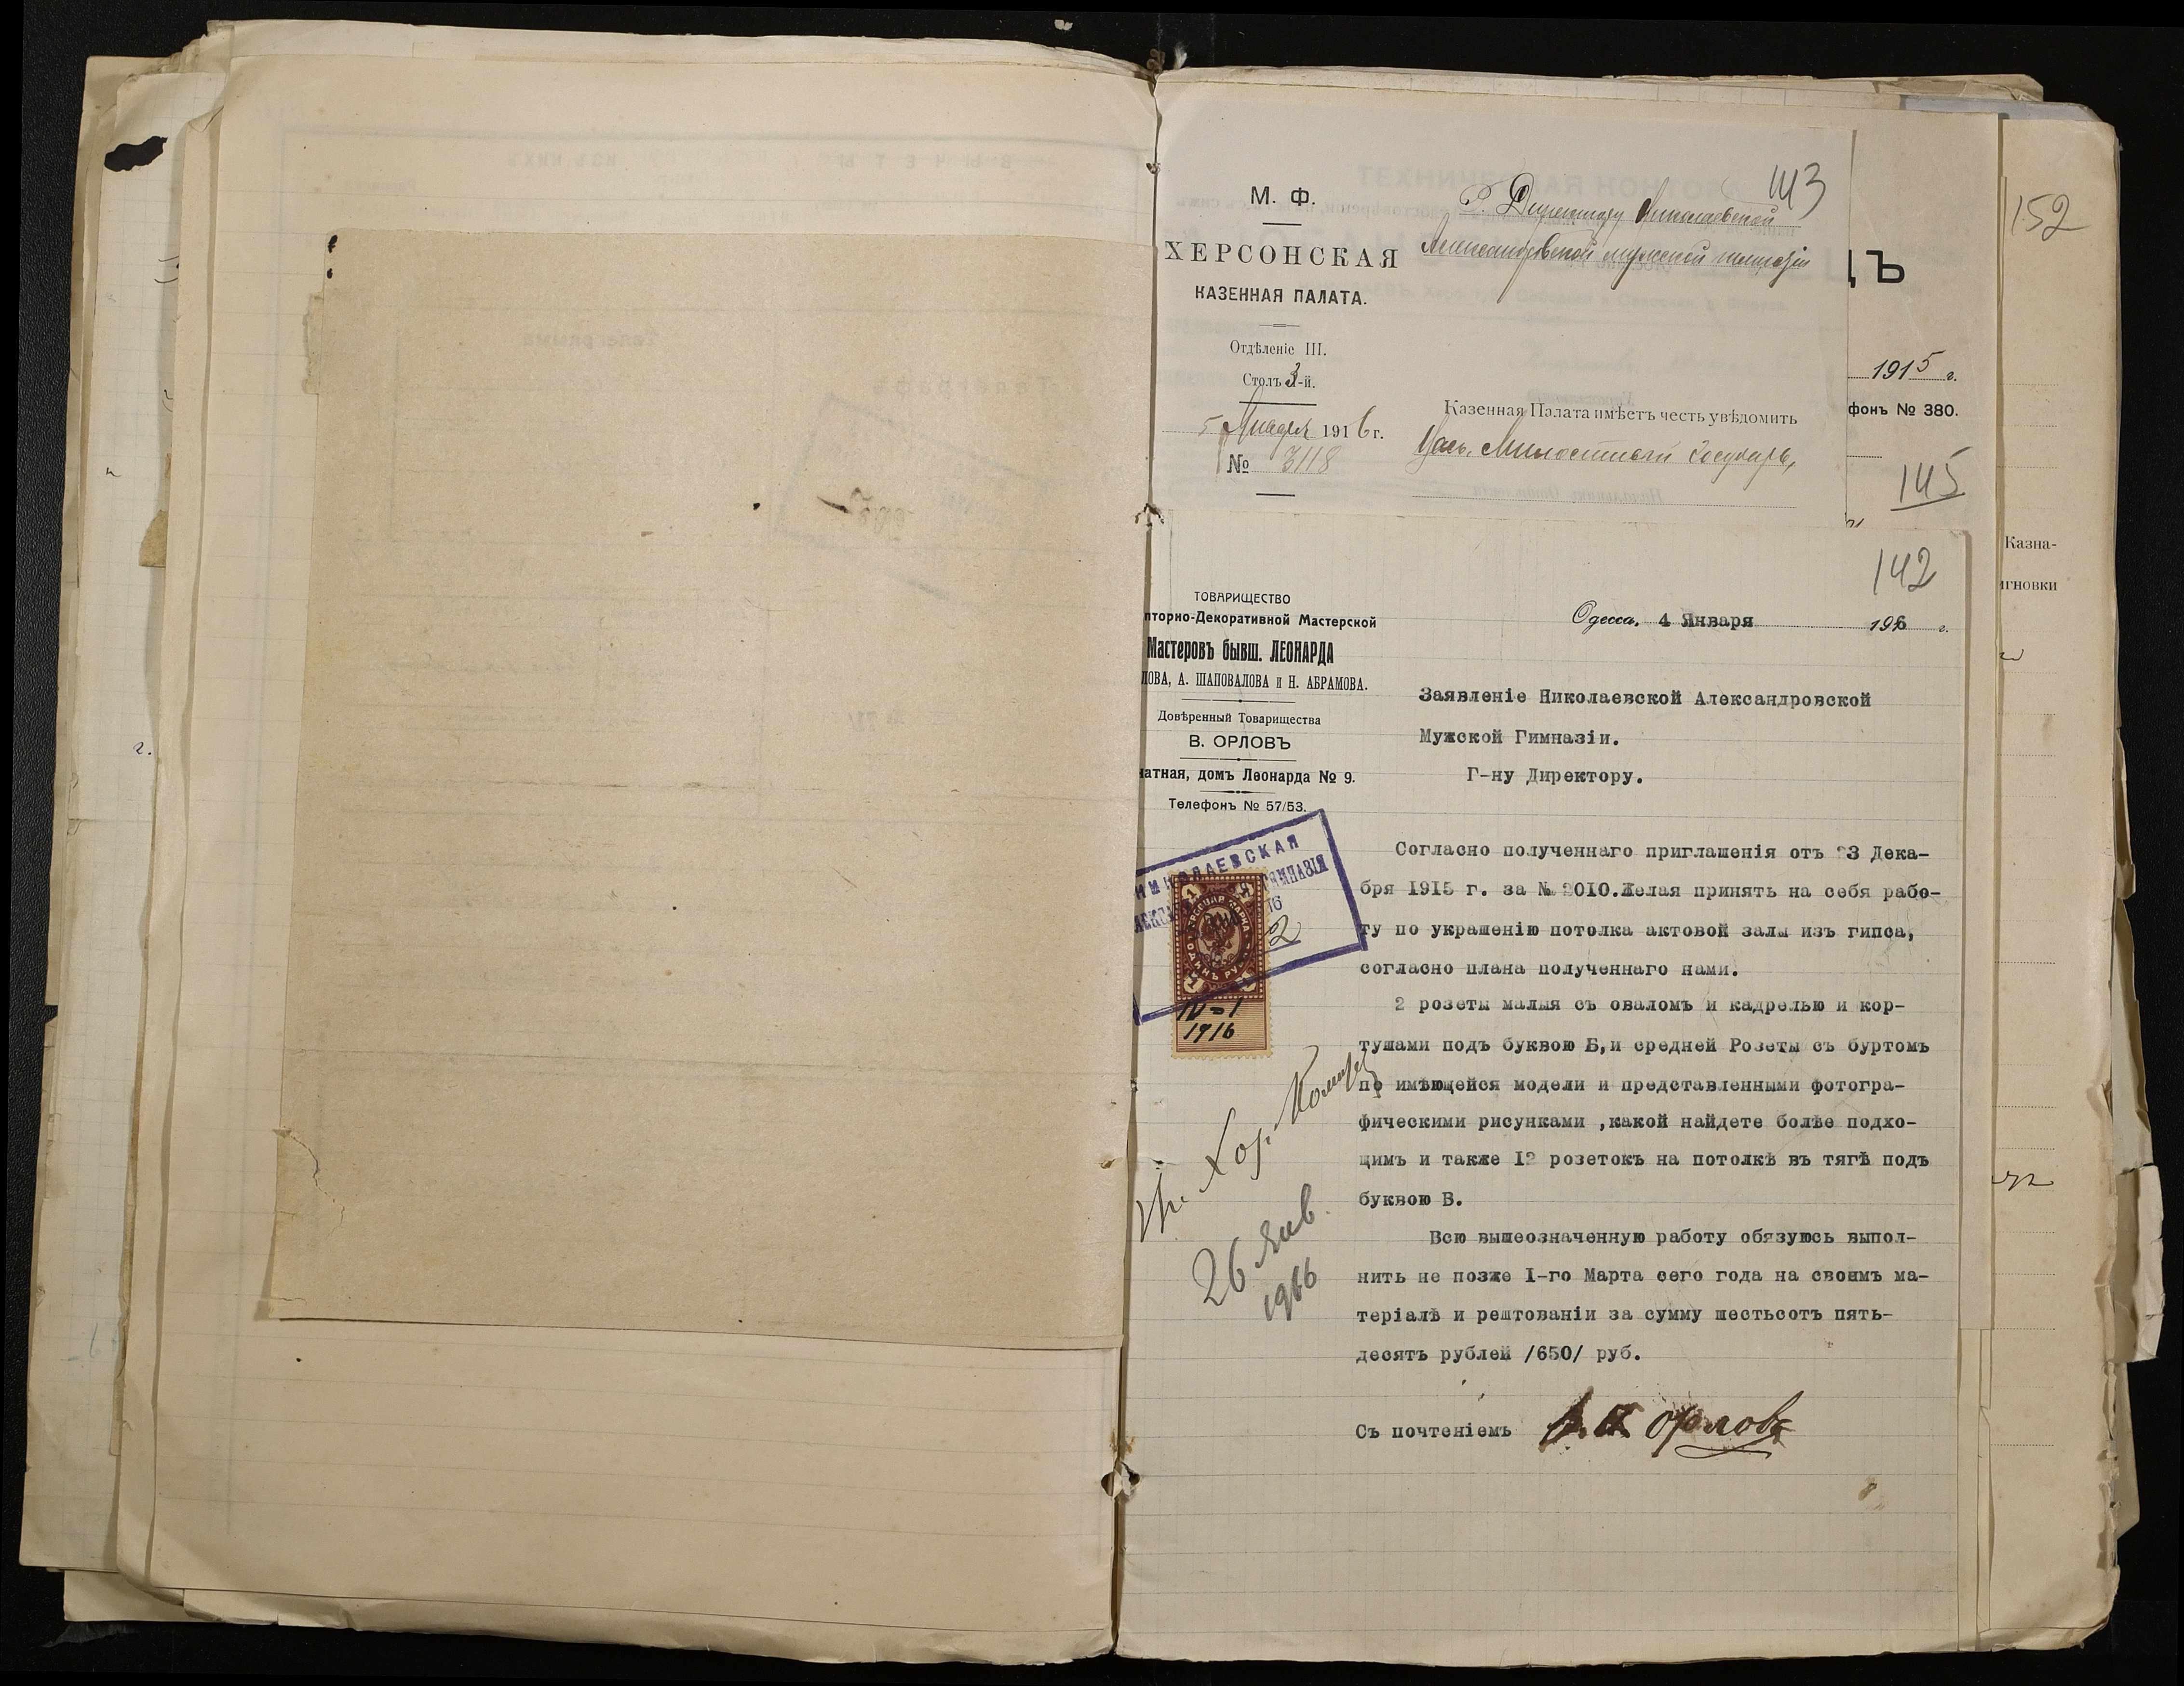 143
М. Ф.
Г. Директору Николаевской
Александровской мужской гимназіи
ХЕРСОНСКАЯ
КАЗЕННАЯ ПАЛАТА.
Отдѣленіе III.
Столъ 3-й.
5 Января 1916 г.
№ 3118
Казенная Палата имѣетъ честь увѣдомить
Васъ, Милостивый Государь,
152
Ъ
1915 г.
фонъ № 380.
145
Казна-
игновки
142
ТОВАРИЩЕСТВО
пторно-Декоративной Мастерской
Мастеровъ бывш. ЛЕОНАРДА
ЛОВА, А. ШАПОВАЛОВА и Н. АБРАМОВА.
Довѣренный Товарищества
В. ОРЛОВЪ
чатная, домъ Леонарда № 9.
Телефонъ № 57/53.
Одесса, 4 Января 1916 г.
Заявленіе Николаевской Александровской
Мужской Гимназіи.
Г-ну Директору.
НИКОЛАЕВСКАЯ
ГИМНАЗІЯ
16
2
ОДИНЪ РУБ
IV-I
1916
Согласно полученнаго приглашенія отъ 23 Дека-
бря 1915 г. за № 2010.Желая принять на себя рабо-
ту по украшенію потолка актовой залы изъ гипса,
согласно плана полученнаго нами.
2 розеты малыя съ оваломъ и кадрелью и кор-
тушами подъ буквою Б,и средней Розеты съ буртомъ
по имѣющейся модели и представленными фотогра-
фическими рисунками ,какой найдете болѣе подхо-
щимъ и также I2 розетокъ на потолкѣ въ тягѣ подъ
буквою В.
Всю вышеозначенную работу обязуюсь выпол-
нить не позже I-го Марта сего года на своимъ ма-
теріалѣ и рештованіи за сумму шестьсотъ пять-
десятъ рублей /650/ руб.
Съ почтеніемъ
Орловъ
26 Янв.
1916